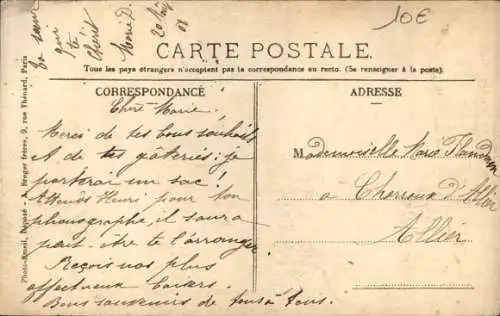 10€
Ta sœur
qui
te
chérit
Marie D.
20
08
CARTE POSTALE.
Tous les pays étrangers n'acceptent pas la correspondance au recto. (Se renseigner à la poste).
CORRESPONDANCE
ADRESSE
Photo-Email, Déposé - A. Breger frères, 9, rue Thénard, Paris
Chère Marie!
Merci de tes bons souhaits
& de tes gâteries; je
porterai un sac!
Attends Henri pour ton
phonographe, il saura
peut-être te l'arranger
Reçois nos plus
affectueux baisers.
Bons souvenirs de tous à tous.
Mademoiselle
à Charroux d'Allier
Allier